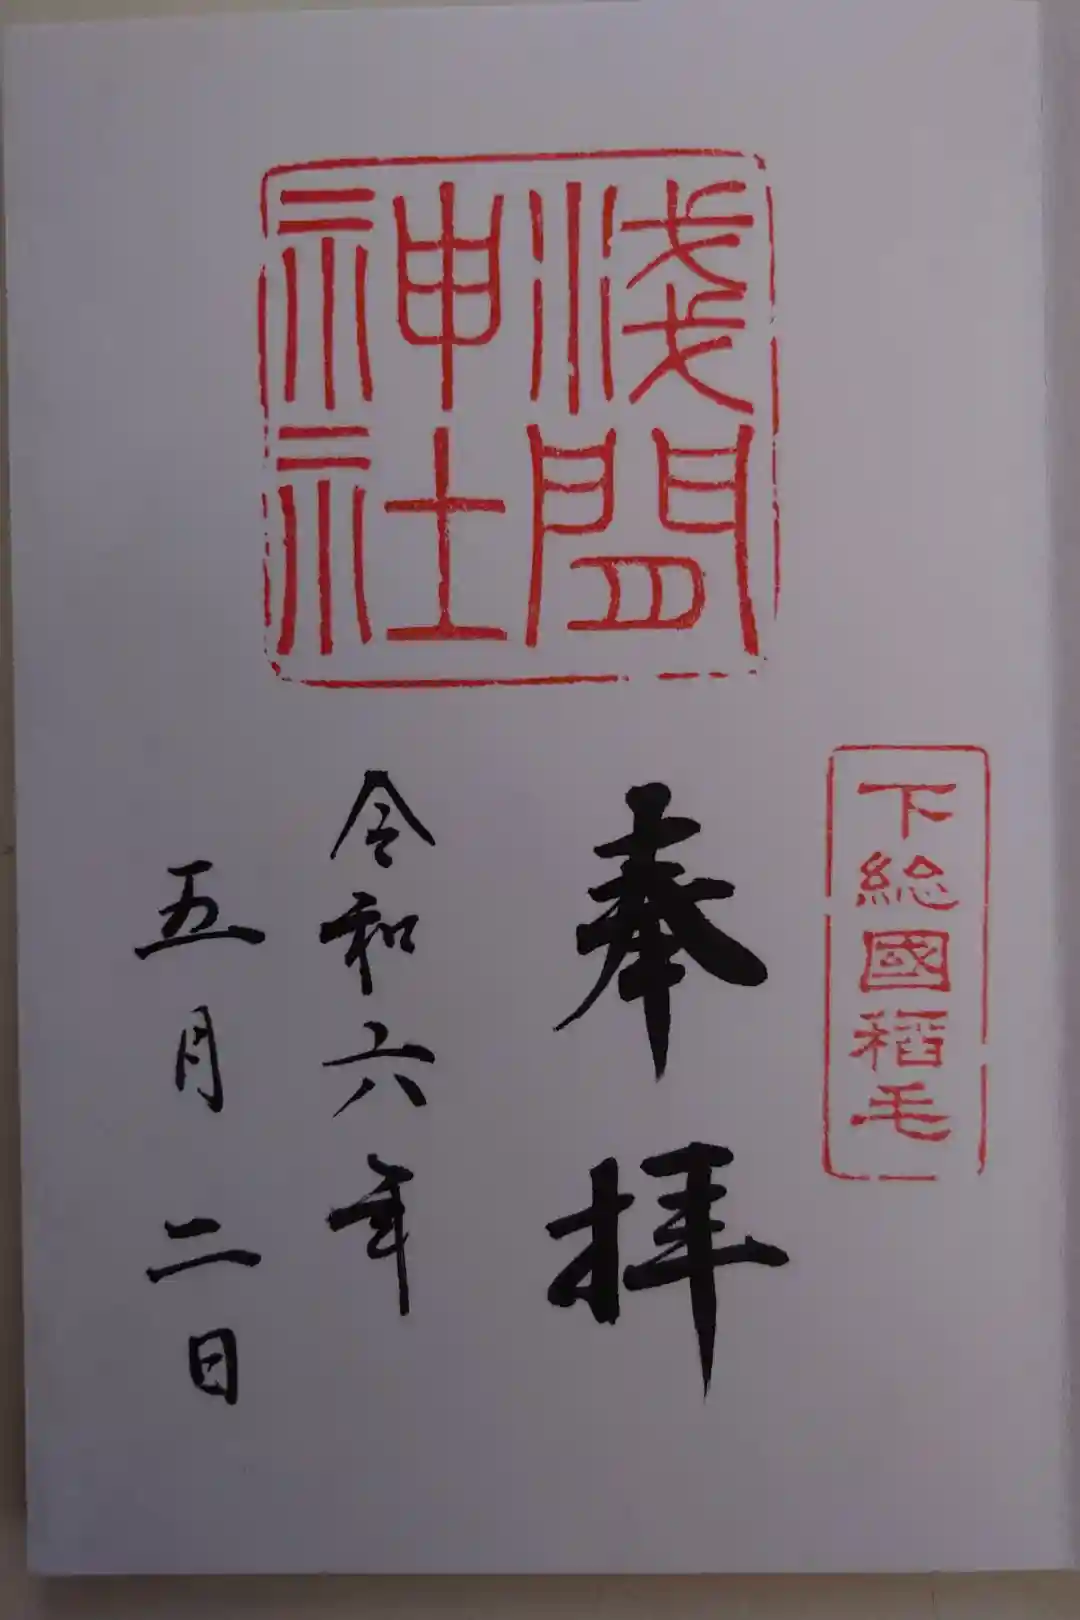 下総國稲毛
淺間
神社
奉拝
令和六年
五月二日